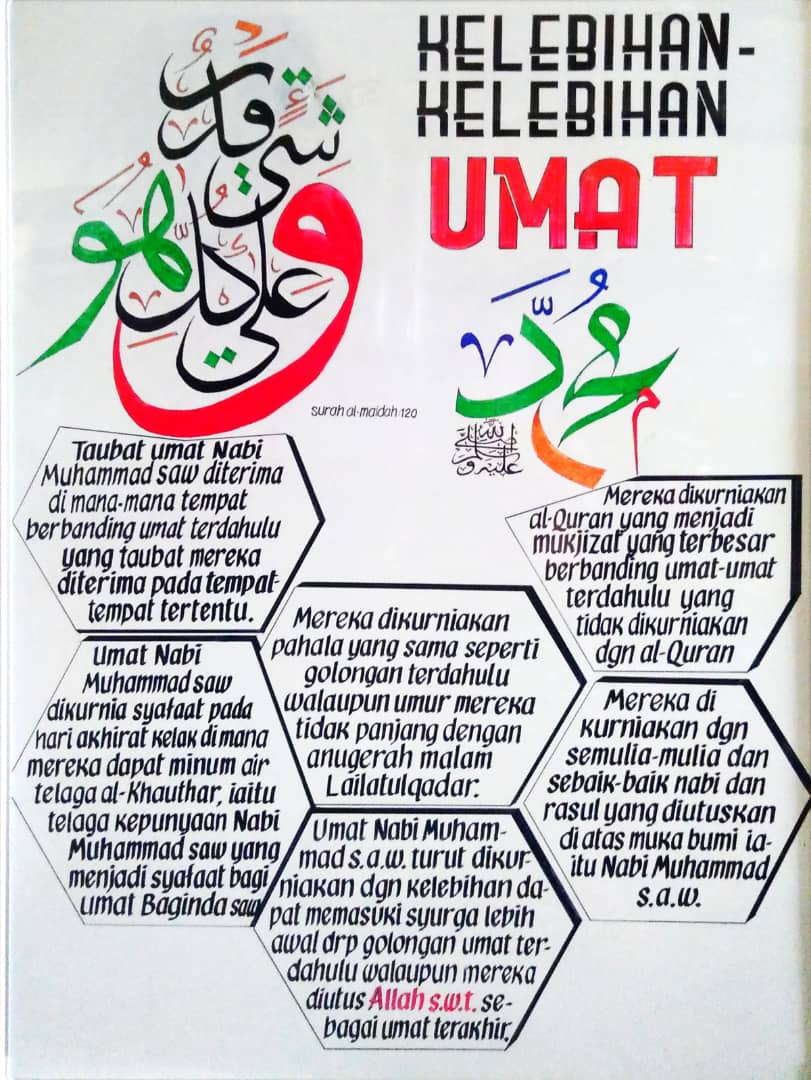 KELEBIHAN-
KELEBIHAN
UMAT
وهو على كل شيء قدير
محمد
صلى الله عليه وسلم
surah al-maidah:120
Taubat umat Nabi
Muhammad saw diterima
di mana-mana tempat
berbanding umat terdahulu
yang taubat mereka
diterima pada tempat-
tempat tertentu.
Mereka dikurniakan
al-Quran yang menjadi
mukjizat yang terbesar
berbanding umat-umat
terdahulu yang
tidak dikurniakan
dgn al-Quran
Mereka dikurniakan
pahala yang sama seperti
golongan terdahulu
walaupun umur mereka
tidak panjang dengan
anugerah malam
Lailatulqadar.
Umat Nabi
Muhammad saw
dikurnia syafaat pada
hari akhirat kelak di mana
mereka dapat minum air
telaga al-Khauthar, iaitu
telaga kepunyaan Nabi
Muhammad saw yang
menjadi syafaat bagi
umat Baginda saw
Mereka di
kurniakan dgn
semulia-mulia dan
sebaik-baik nabi dan
rasul yang diutuskan
di atas muka bumi ia-
itu Nabi Muhammad
s.a.w.
Umat Nabi Muham-
mad s.a.w. turut dikur-
niakan dgn kelebihan da-
pat memasuki syurga lebih
awal drp golongan umat ter-
dahulu walaupun mereka
diutus Allah s.w.t. se-
bagai umat terakhir.